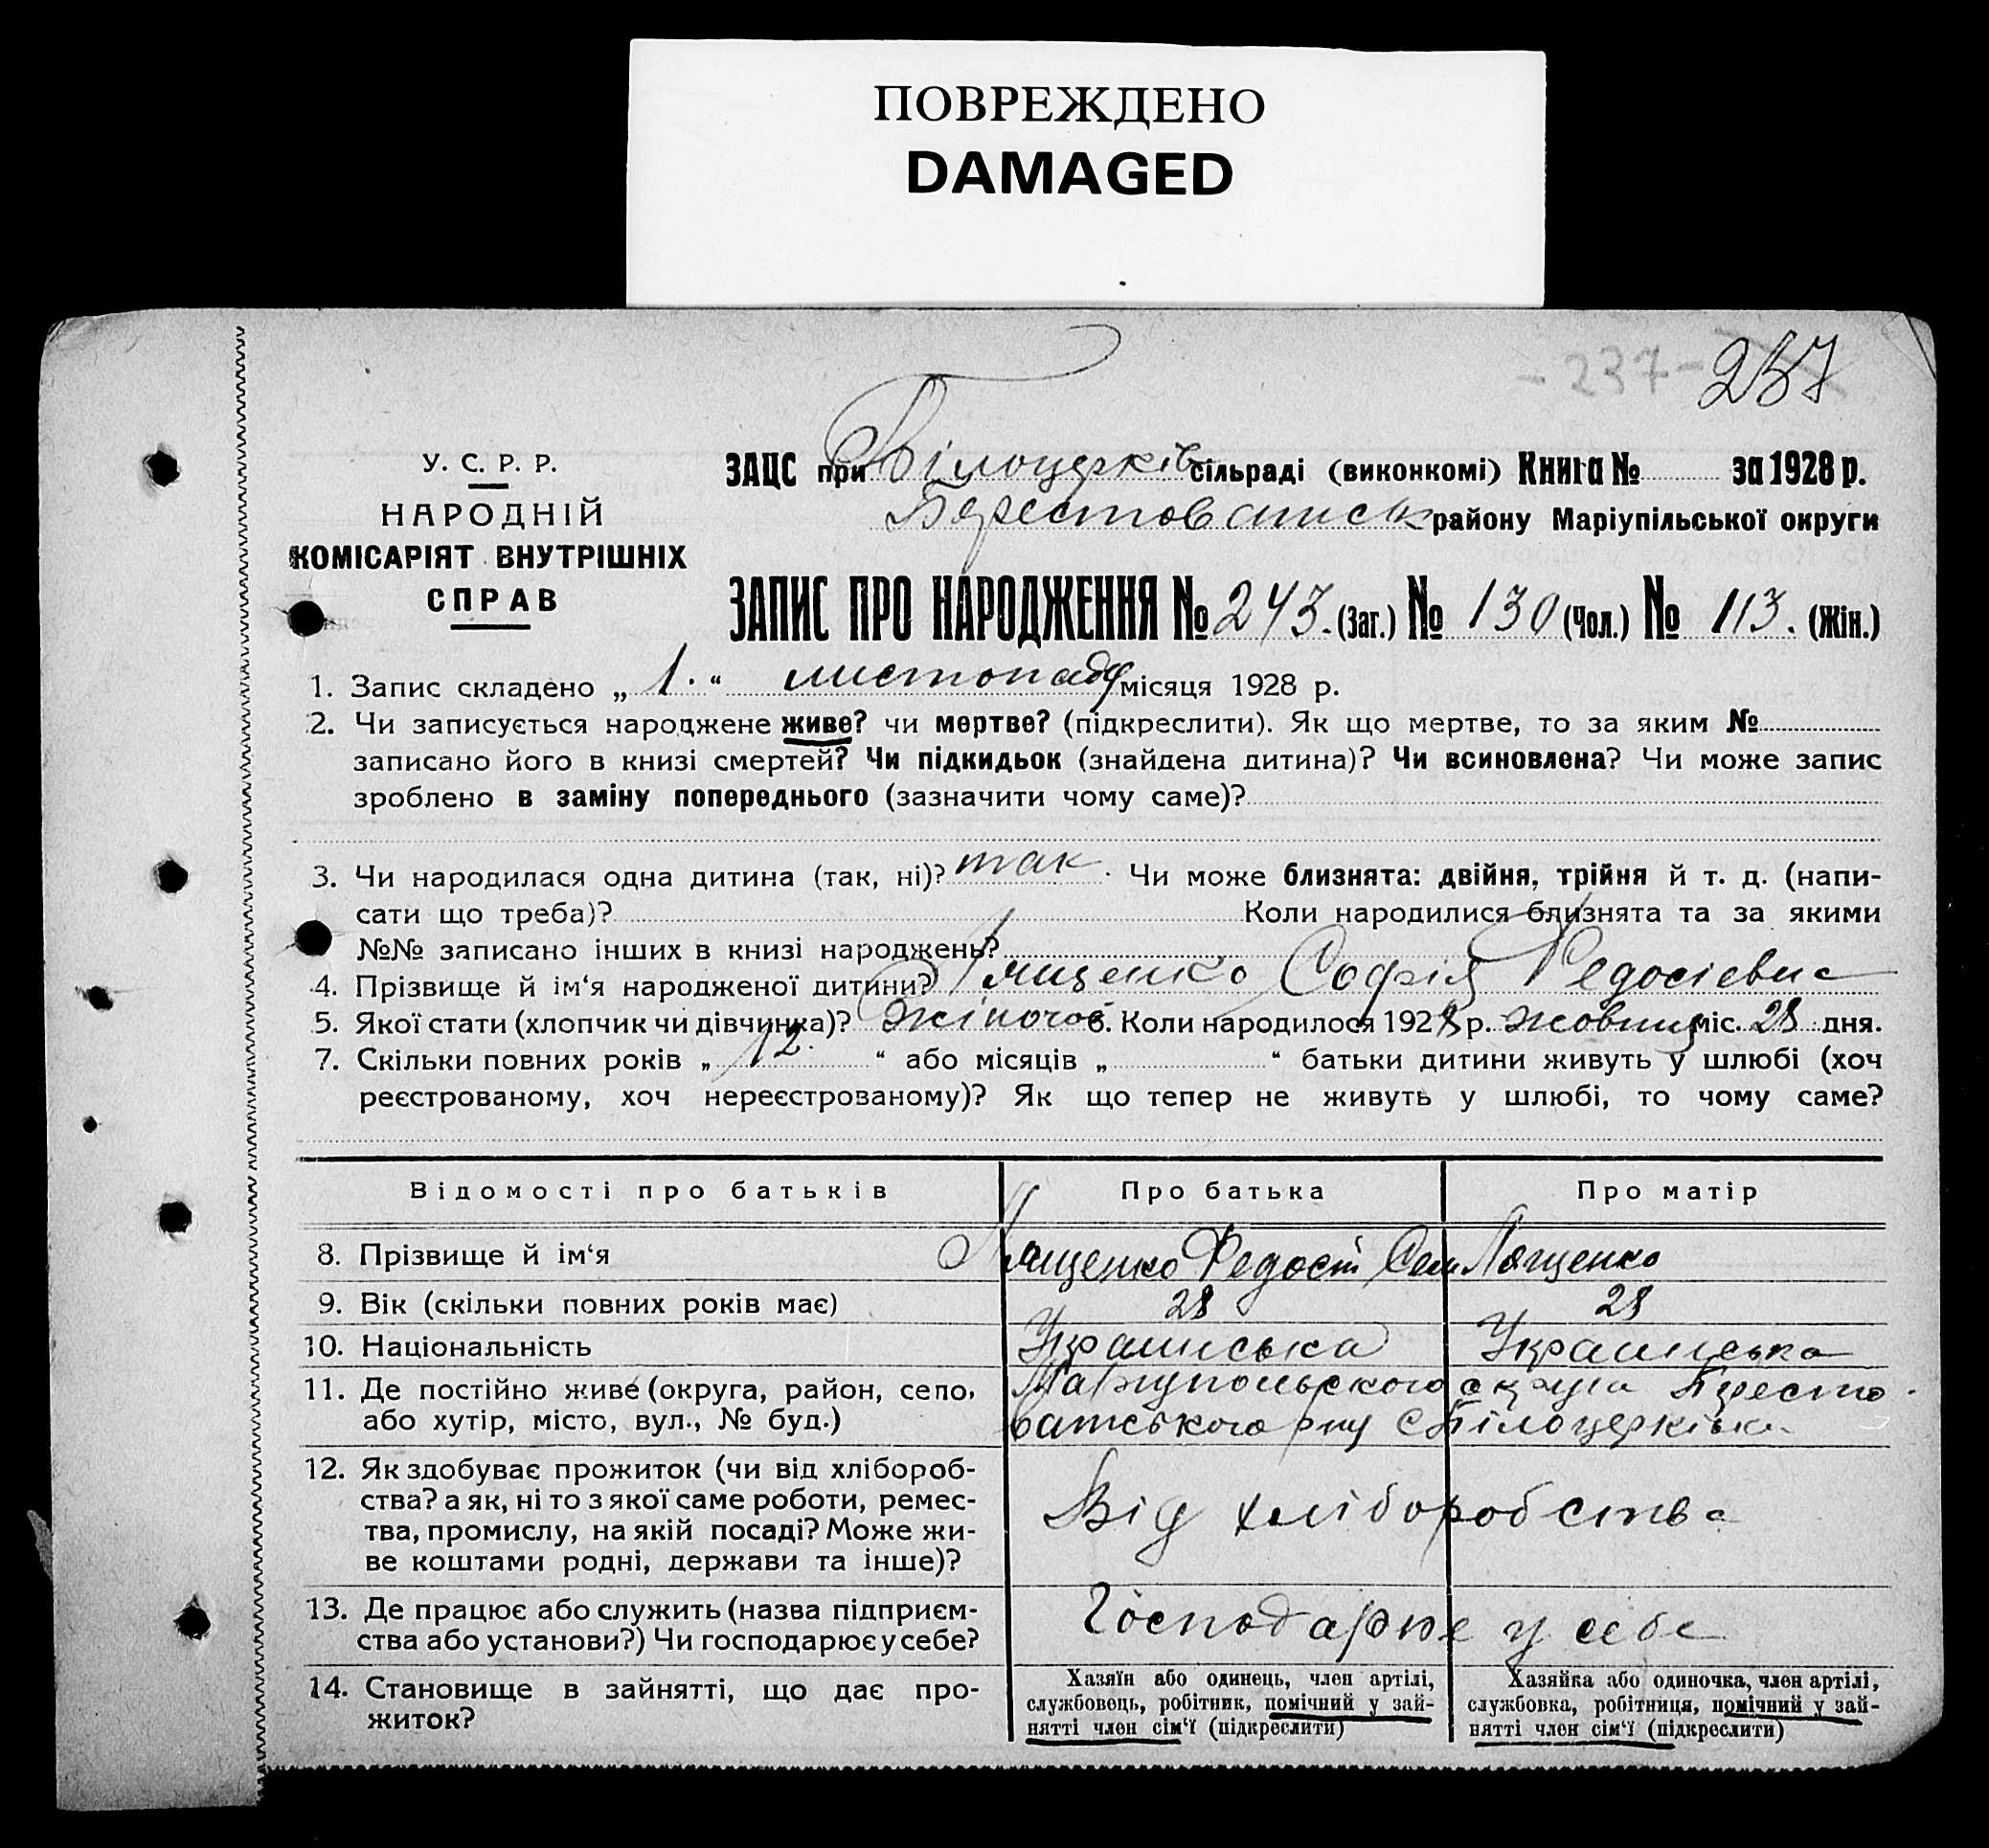 ПОВРЕЖДЕНО
DAMAGED
- 237 - 237
У. С. Р. Р.
НАРОДНІЙ
КОМІСАРІЯТ ВНУТРІШНІХ
СПРАВ
ЗАЦС при Білоцерків сільраді (виконкомі) Книга № за 1928 р.
Берестованск району Маріупільської округи
ЗАПИС ПРО НАРОДЖЕННЯ № 243. (Заг.) № 130 (Чол.) № 113. (Жін.)
1. Запис складено „ 1. “ листопаду місяця 1928 р.
2. Чи записується народжене живе? чи мертве? (підкреслити). Як що мертве, то за яким №
записано його в книзі смертей? Чи підкидьок (знайдена дитина)? Чи всиновлена? Чи може запис
зроблено в заміну попереднього (зазначити чому саме)?
3. Чи народилася одна дитина (так, ні)? так. Чи може близнята: двійня, трійня й т. д. (напи-
сати що треба)? Коли народилися близнята та за якими
№№ записано інших в книзі народжень?
4. Прізвище й ім‘я народженої дитини? Лященко Софія Федосіевна
5. Якої стати (хлопчик чи дівчинка)? жіночоі 6. Коли народилося 1928 р. жовтня міс. 28 дня.
7. Скільки повних років „ 12. “ або місяців „ “ батьки дитини живуть у шлюбі (хоч
реєстрованому, хоч нереєстрованому)? Як що тепер не живуть у шлюбі, то чому саме?
Відомості про батьків Про батька Про матір
8. Прізвище й ім‘я Лященко Федосій Сем Лященко
9. Вік (скільки повних років має) 28 28
10. Національність Украинська Украинська
11. Де постійно живе (округа, район, село, Маріупольского округа Бересто
або хутір, місто, вул., № буд.) ватського рну с Білоцерківка
12. Як здобуває прожиток (чи від хлібороб-
ства? а як, ні то з якої саме роботи, ремес-
тва, промислу, на якій посаді? Може жи-
ве коштами родні, держави та інше)?
Від хліборобства
13. Де працює або служить (назва підприєм-
ства або установи?) Чи господарює у себе?
Господарює у себе
14. Становище в зайнятті, що дає про-
житок?
Хазяїн або одинець, член артілі,
службовець, робітник, помічний у зай-
нятті член сім‘ї (підкреслити)
Хазяйка або одиночка, член артілі,
службовка, робітниця, помічний у зай-
нятті член сім‘ї (підкреслити)